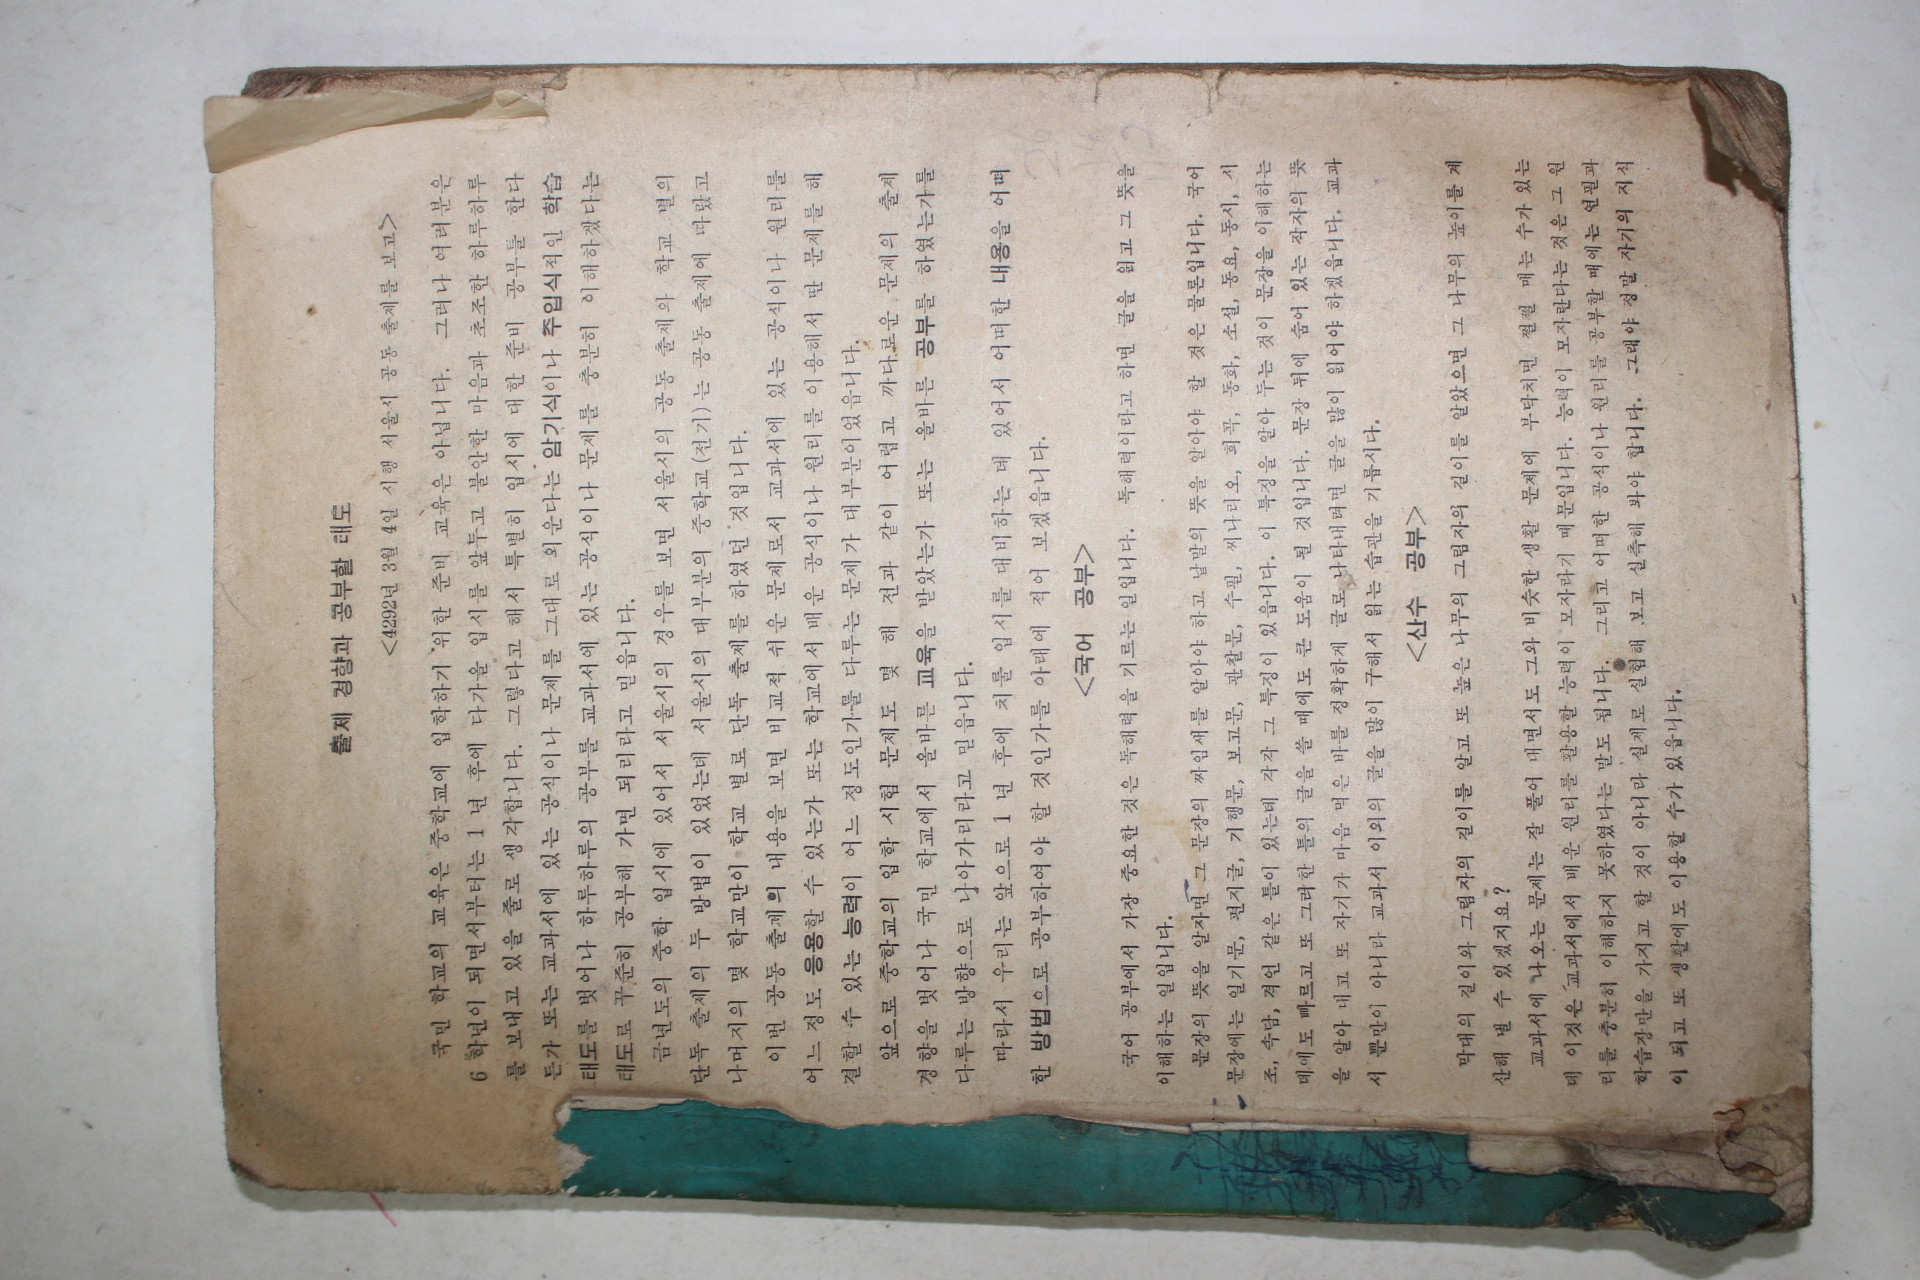 출제 경향과 공부할 태도
<4292년 3월 4일 시행 서울시 공동 출제를 보고>
국민 학교의 교육은 중학교에 입학하기 위한 준비 교육은 아닙니다. 그러나 여러분은
6학년이 되면서부터는 1년 후에 다가올 입시를 앞두고 불안한 마음과 초조한 하루하루
를 보내고 있을 줄로 생각합니다. 그렇다고 해서 특별히 입시에 대한 준비 공부를 한다
든가 또는 교과서에 있는 공식이나 문제를 그대로 외운다는 암기식이나 주입식적인 학습
태도를 벗어나 하루하루의 공부를 교과서에 있는 공식이나 문제를 충분히 이해하겠다는
태도로 꾸준히 공부해 가면 되리라고 믿읍니다.
금년도의 중학 입시에 있어서 서울시의 경우를 보면 서울시의 공동 출제와 학교 별의
단독 출제의 두 방법이 있었는데 서울시의 대부분의 중학교(전기)는 공동 출제에 따랐고
나머지의 몇 학교만이 학교 별로 단독 출제를 하였던 것입니다.
이번 공동 출제의 내용을 보면 비교적 쉬운 문제로서 교과서에 있는 공식이나 원리를
어느 정도 응용할 수 있는가 또는 학교에서 배운 공식이나 원리를 이용해서 딴 문제를 해
결할 수 있는 능력이 어느 정도인가를 다루는 문제가 대부분이었읍니다.
앞으로 중학교의 입학 시험 문제도 몇 해 전과 같이 어렵고 까다로운 문제의 출제
경향을 벗어나 국민 학교에서 올바른 교육을 받았는가 또는 올바른 공부를 하였는가를
다루는 방향으로 나아가리라고 믿읍니다.
따라서 우리는 앞으로 1년 후에 치를 입시를 대비하는 데 있어서 어떠한 내용을 어떠
한 방법으로 공부하여야 할 것인가를 아래에 적어 보겠읍니다.
<국어 공부>
국어 공부에서 가장 중요한 것은 독해력을 기르는 일입니다. 독해력이라고 하면 글을 읽고 그 뜻을
이해하는 일입니다.
문장의 뜻을 알자면 그 문장의 짜임새를 알아야 하고 낱말의 뜻을 알아야 할 것은 물론입니다. 국어
문장에는 일기문, 편지글, 기행문, 보고문, 관찰문, 수필, 씨나리오, 희곡, 동화, 소설, 동요, 동시, 시
조, 속담, 격언 같은 들이 있는데 각각 그 특징이 있읍니다. 이 특징을 알아 두는 것이 문장을 이해하는
데에도 빠르고 또 그러한 틀의 글을 쓸 때에도 큰 도움이 될 것입니다. 문장 뒤에 숨어 있는 작자의 뜻
을 알아 내고 또 자기가 마음 먹은 바를 정확하게 글로 나타내려면 글을 많이 읽어야 하겠읍니다. 교과
서 뿐만이 아니라 교과서 이외의 글을 많이 구해서 읽는 습관을 기릅시다.
<산수 공부>
막대의 길이와 그림자의 길이를 알고 또 높은 나무의 그림자의 길이를 알았으면 그 나무의 높이를 계
산해 낼 수 있겠지요?
교과서에 나오는 문제는 잘 풀어 내면서도 그와 비슷한 생활 문제에 부닥치면 쩔쩔 매는 수가 있는
데 이것은 교과서에서 배운 원리를 활용할 능력이 모자라기 때문입니다. 능력이 모자란다는 것은 그 원
리를 충분히 이해하지 못하였다는 말도 됩니다. 그리고 어떠한 공식이나 원리를 공부할 때에는 연필과
학습장만을 가지고 할 것이 아니라 실제로 실험해 보고 실측해 봐야 합니다. 그래야 정말 자기의 지식
이 되고 또 생활에도 이용할 수가 있읍니다.